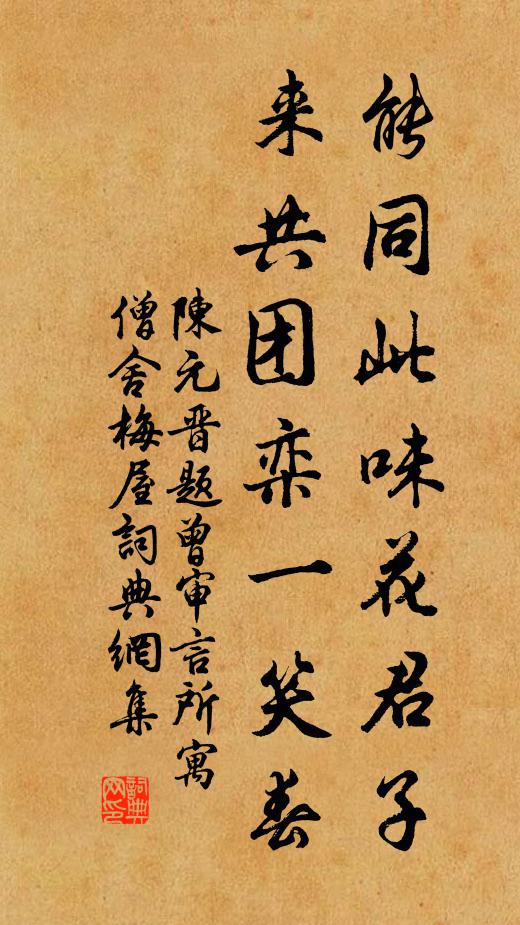 能同此味花君子
来共团栾一笑春
陳元晋題曾审言所寓
僧舍梅屋詞典網集
詞典网印